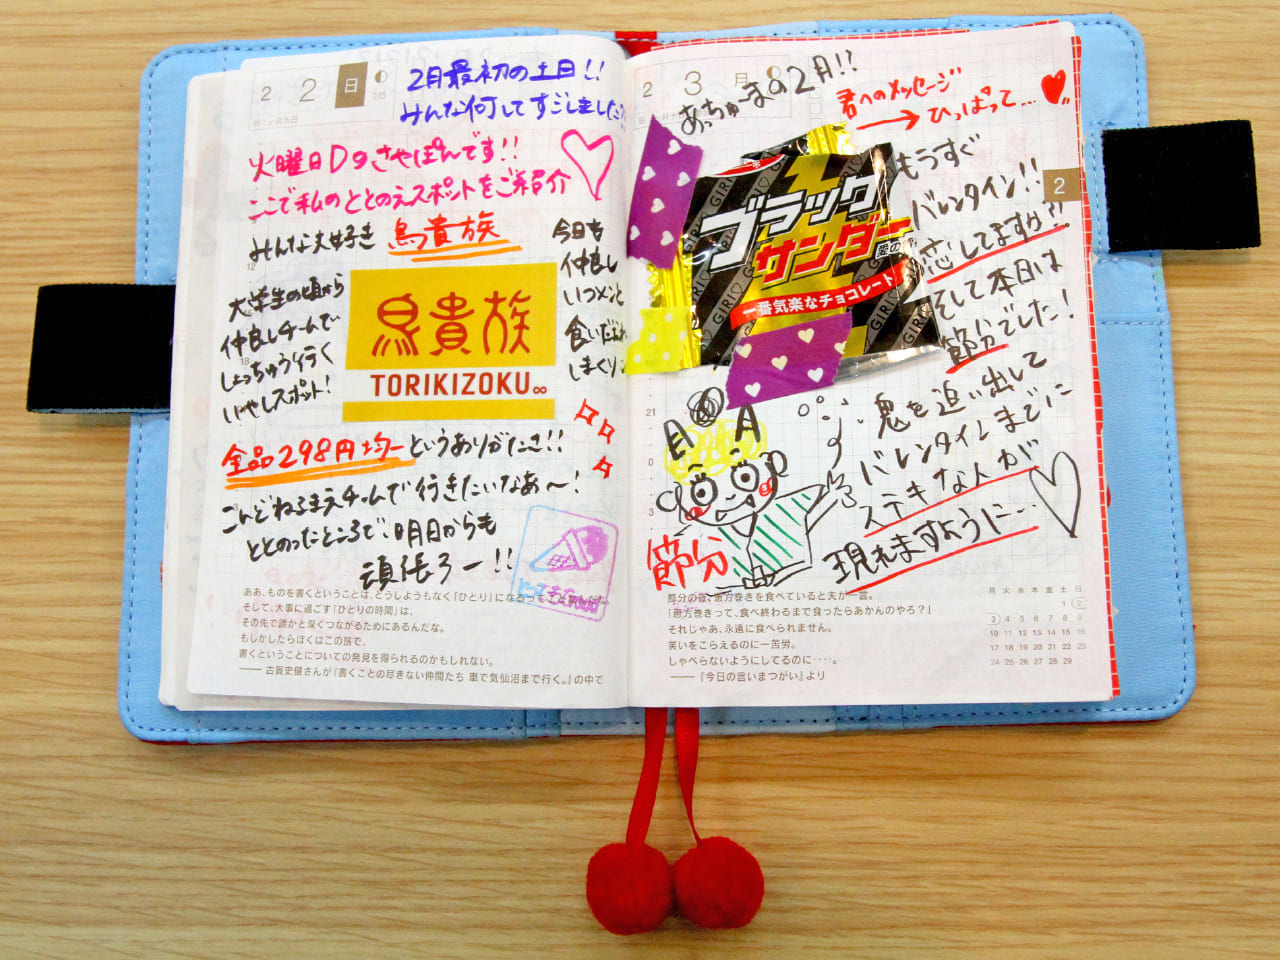 2 2 日
2月最初の土日!!
みんな何してすごしました
火曜日Dのさやぽんです!!
ここで私のととのえスポットをご紹介
みんな大好き 鳥貴族
大学生の頃から
仲良しチームで
しょっちゅう行く
いやしスポット!
鳥貴族
TORIKIZOKU
今日も
仲良し
いつメンと
食いだおれ
しまくり
全品298円均一というありがたさ!!
こんどねるまえチームで行きたいなあ〜!
ととのったところで、明日からも
頑張ろー!!
ああ、ものを書くということは、どうしようもなく「ひとり」になるってことなんだな。
そして、大事に過ごす「ひとりの時間」は、
その先で誰かと深くつながるためにあるんだな。
もしかしたらぼくはこの旅で、
書くということについての発見を得られるのかもしれない。
―― 古賀史健さんが『書くことの尽きない仲間たち 車で気仙沼まで行く。』の中で
2 3 月
あっちゅーまの2月!?
君へのメッセージ
→ ひっぱって…
ブラック
サンダー
一番気楽なチョコレート
GIRI
もうすぐ
バレンタイン!!
恋してますか?!
そして本日は
節分でした!
鬼を追い出して
バレンタインまでに
ステキな人が
現れますように…
節分
2
21
0
3
節分の夜、恵方巻きを食べていると夫が一言。
「恵方巻きって、食べ終わるまで食ったらあかんのやろ?」
それじゃあ、永遠に食べられません。
笑いをこらえるのに一苦労。
しゃべらないようにしてるのに‥‥。
――『今日の言いまつがい』より
月 火 水 木 金 土 日
1 2
3 4 5 6 7 8 9
10 11 12 13 14 15 16
17 18 19 20 21 22 23
24 25 26 27 28 29